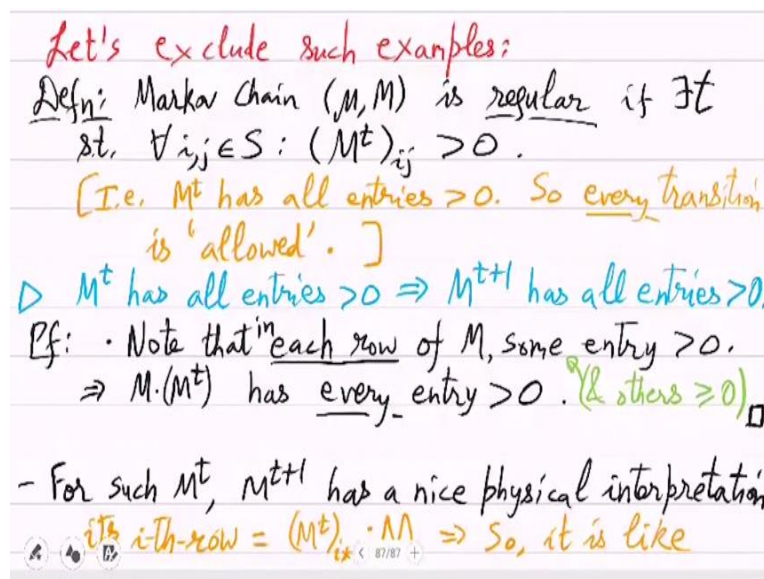 Let's exclude such examples:
Defn: Markov Chain (μ,M) is regular if ∃t
s.t. ∀i,j∈S : (M^t)_ij >0.
[I.e. M^t has all entries >0. So every transition
is 'allowed'. ]
▷ M^t has all entries >0 ⇒ M^{t+1} has all entries >0.
Pf: · Note that in each row of M, some entry >0.
⇒ M·(M^t) has every entry >0. (& others ≥0) □
- For such M^t, M^{t+1} has a nice physical interpretation
its i-th-row = (M^t)_{i*} · M ⇒ So, it is like
< 87/87 +